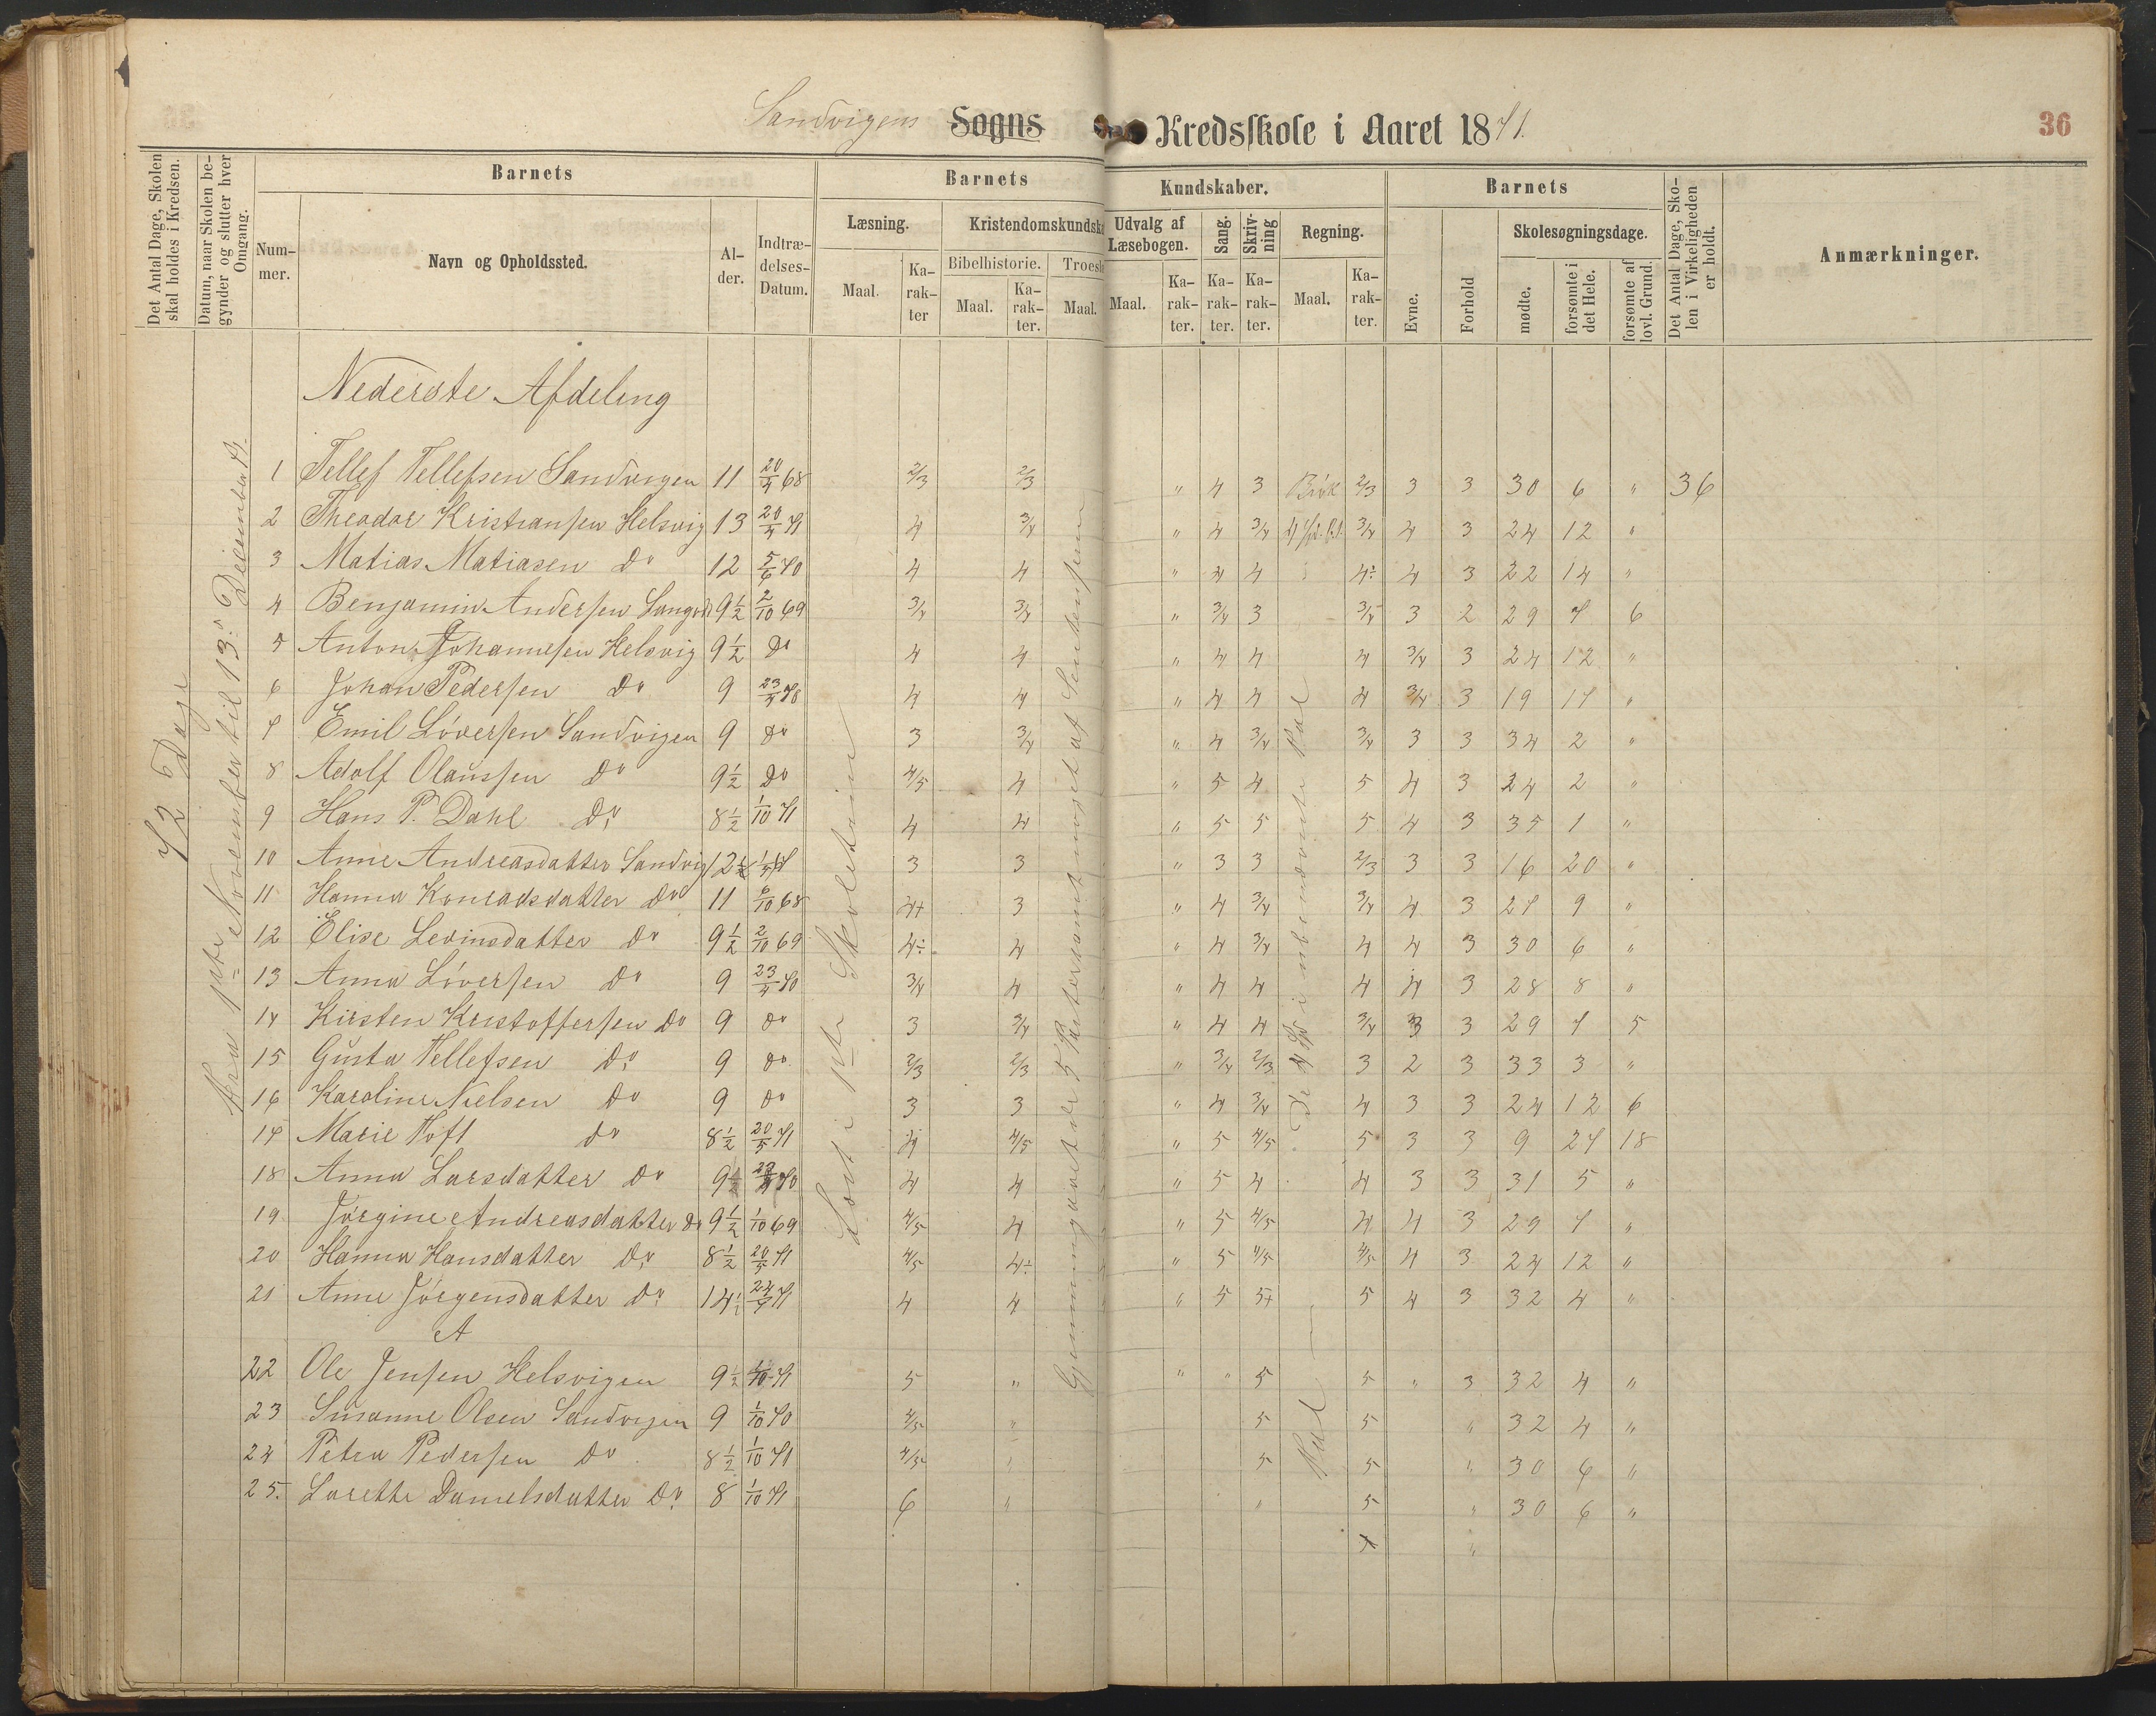 Sandvigens Sogns Kredsskole i Aaret 1871.
36
Det Antal Dage, Skolen skal holdes i Kredsen.
Datum, naar Skolen begynder og slutter hver Omgang.
Barnets
Nummer.
Navn og Opholdssted.
Alder.
Indtrædelses-Datum.
Barnets Kundskaber.
Læsning.
Maal.
Karakter
Kristendomskundska
Bibelhistorie.
Maal.
Karakter.
Troesl
Maal.
Udvalg af Læsebogen.
Maal.
Karakter.
Sang.
Karakter.
Skrivning
Karakter.
Regning.
Maal.
Karakter.
Barnets
Evne.
Forhold
Skolesøgningsdage.
mødte.
forsømte i det Hele.
forsømte af lovl. Grund.
Det Antal Dage, Skolen i Virkeligheden er holdt.
Anmærkninger.
72 Dage
Fra 1ste November til 13de December 71.
Læst i 1ste Skoletrin
Gjennemgaaet de 5 Parter samt noget af
De 4 Sp. i ubenævnte Tal
Tal
Nederste Afdeling
1 Tellef Tellefsen Sandvigen 11 20/4 68 2/3 2/3 " 4 3 Brøk 2/3 3 3 30 6 " 36
2 Theodor Kristiansen Helsvig 13 20/4 71 4 3/4 " 4 3/4 3/4 4 3 24 12 "
3 Matias Matiasen Do 12 5/6 70 4 4 " 4 4 4÷ 4 3 22 14 "
4 Benjamin Andersen 9 1/2 2/10 69 3/4 3/4 " 3/4 3 3/4 3 2 29 7 6
5 Anton Johannesen Helsvig 9 1/2 Do 4 4 " 4 4 4 3/4 3 24 12 "
6 Johan Pedersen Do 9 23/4 70 4 4 " 4 4 4 3/4 3 19 17 "
7 Emil Løversen Sandvigen 9 Do 3 3/4 " 4 3/4 3/4 3 3 34 2 "
8 Adolf Olaussen Do 9 1/2 Do 4/5 4 " 5 4 5 4 3 34 2 "
9 Hans P. Dahl Do 8 1/2 1/10 71 4 4 " 5 5 5 4 3 35 1 "
10 Anne Andreasdatter Sandvig 12 1/2 3 3 " 3 3 2/3 3 3 16 20 "
11 Hanna Konradsdatter Do 11 6/10 68 4+ 3 " 4 3/4 3/4 4 3 27 9 "
12 Elise Levinsdatter Do 9 1/2 2/10 69 4÷ 4 " 4 3/4 4 4 3 30 6 "
13 Anna Løversen Do 9 23/4 70 3/4 4 " 4 4 4 4 3 28 8 "
14 Kirsten Kristoffersen Do 9 Do 3 3/4 " 4 4 3/4 3 3 29 7 5
15 Gusta Tellefsen Do 9 Do 2/3 2/3 " 3/4 2/3 3 2 3 33 3 "
16 Karoline Nielsen Do 9 Do 3 3 " 4 3/4 4 3 3 24 12 6
17 Marie Toft Do 8 1/2 20/5 71 4 4/5 " 5 4/5 5 3 3 9 27 18
18 Anna Larsdatter Do 9 1/2 23/4 70 4 4 " 5 4 4 3 3 31 5 "
19 Jørgine Andreasdatter Do 9 1/2 1/10 69 4/5 4 " 5 4/5 4 4 3 29 7 "
20 Hanna Hansdatter Do 8 1/2 20/5 71 4/5 4÷ " 5 4/5 4/5 4 3 24 12 "
21 Anne Jørgensdatter Do 14 1/2 4 4 " 5 5+ 5 4 3 32 4 "
A
22 Ole Jensen Helsvigen 9 1/2 1/10 71 5 " " " 5 5 " 3 32 4 "
23 Susanne Olsen Sandvigen 9 1/10 70 4/5 " 5 5 " 32 4 "
24 Petra Pedersen Do 8 1/2 1/10 71 4/5 " 5 5 " 30 6 "
25. Lorette Danielsdatter Do 8 1/10 71 6 " " 5 " 30 6 "